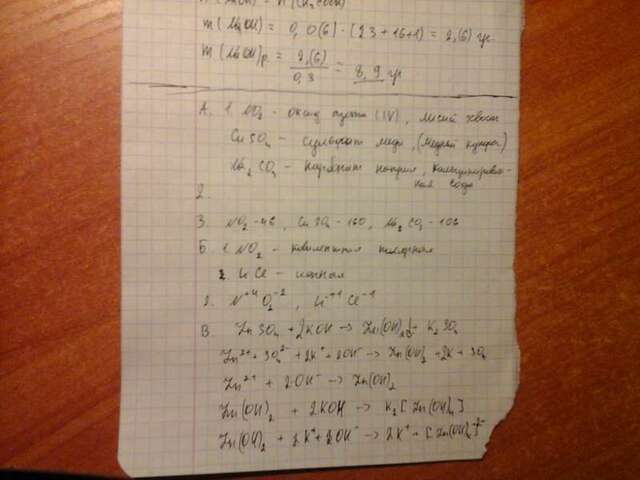 m (NaOH) = 0,0(6) · (23 + 16 + 1) = 2,(6) гр.
m (NaOH)р. = 2,(6) / 0,3 = 8,9 гр
А. 1. NO₂ - оксид азота (IV), лисий хвост
CuSO₄ - сульфат меди, (медный купорос)
Na₂CO₃ - карбонат натрия, кальцинирован-
ная сода
2.
3. NO₂ - 46, CuSO₄ - 160, Na₂CO₃ - 106
Б. 1. NO₂ - ковалентная полярная
2. LiCl - ионная
2. N⁺⁴O₂⁻², Li⁺¹Cl⁻¹
В. ZnSO₄ + 2KOH → Zn(OH)₂↓ + K₂SO₄
Zn²⁺ + SO₄²⁻ + 2K⁺ + 2OH⁻ → Zn(OH)₂ + 2K + SO₄
Zn²⁺ + 2OH⁻ → Zn(OH)₂
Zn(OH)₂ + 2KOH → K₂[Zn(OH)₄]
Zn(OH)₂ + 2K⁺ + 2OH⁻ → 2K⁺ + [Zn(OH)₄]